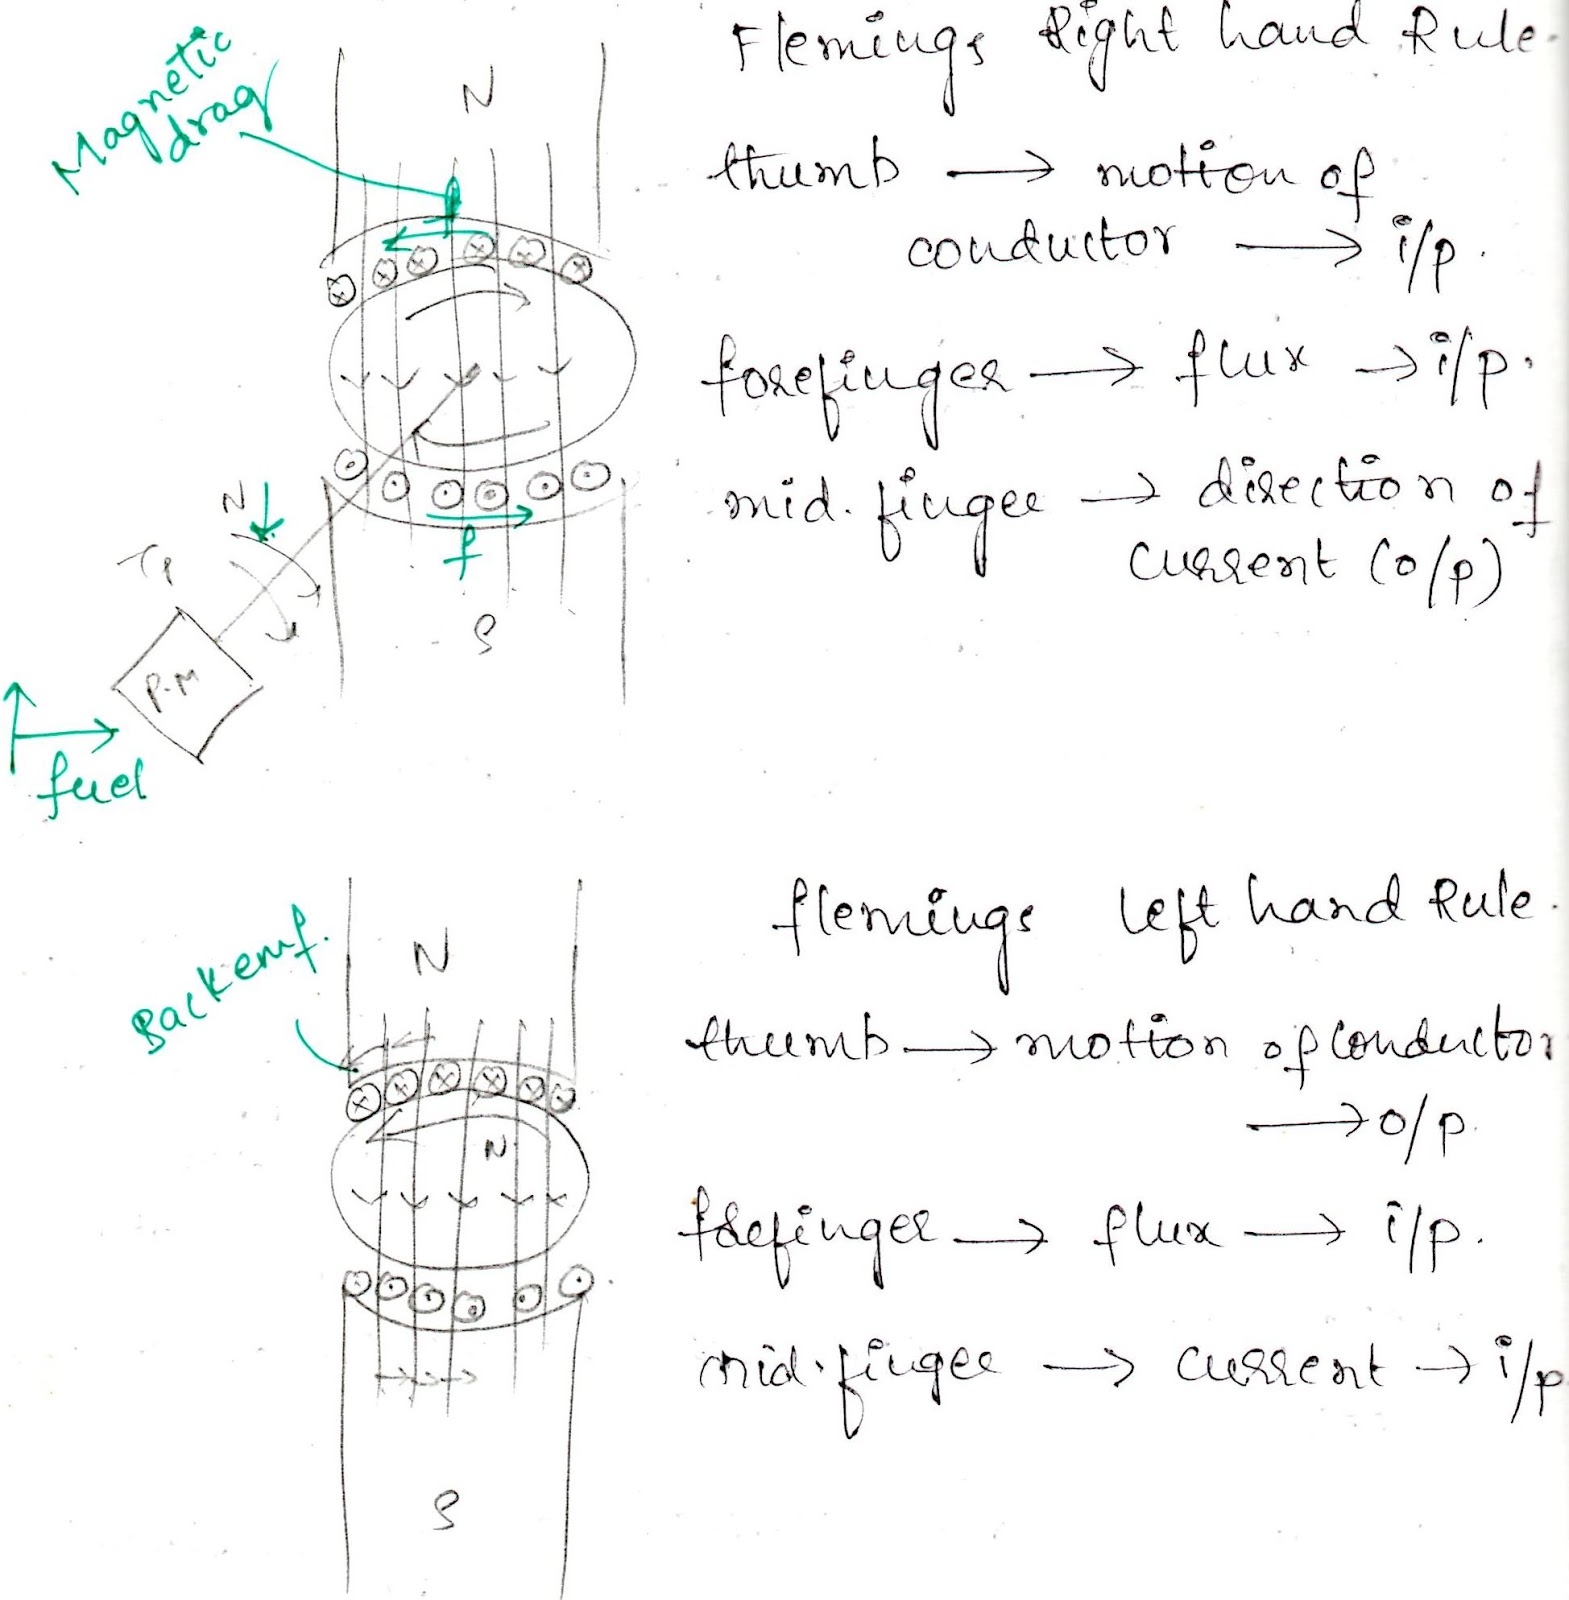 Magnetic
drag
N
Flemings Right hand Rule.
thumb → motion of
conductor → i/p.
forefinger → flux → i/p.
mid. finger → direction of
current (o/p)
f
N
Tp
P.M
S
fuel
flemings left hand Rule.
Back emf.
N
thumb → motion of conductor
→ o/p.
N
forefinger → flux → i/p.
mid. finger → current → i/p
S